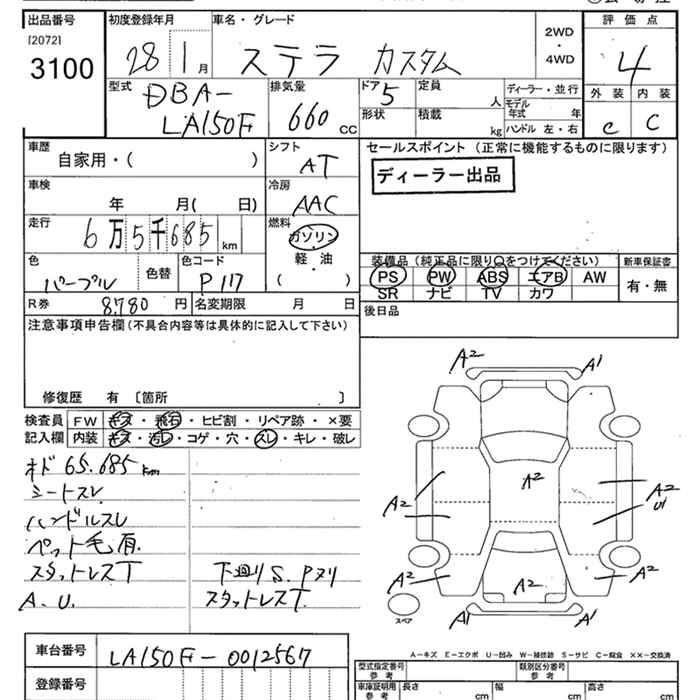 出品番号 初度登録年月 車名・グレード 評価点
[2072]
3100
28 1月 ステラ カスタム
2WD・4WD
4
外装 内装
C C
型式 DBA-LA150F
排気量 660 CC
ドア 5
形状
定員 人
積載 kg
ディーラー・並行
モデル年式 年
ハンドル 左・右
車歴 自家用・( )
シフト AT
セールスポイント (正常に機能するものに限ります)
ディーラー出品
車検 年 月( 日)
冷房 AAC
走行 6万5千685 km
燃料 ガソリン
軽油
( )
色 パープル 色替 色コード P117
装備品 (純正品に限り○をつけてください)
PS PW ABS エアB AW
SR ナビ TV カワ
新車保証書
有・無
R券 8.780円 名変期限 月 日
後日品
注意事項申告欄 (不具合内容等は具体的に記入して下さい)
修復歴 有 〔箇所 〕
検査員記入欄
FW キズ・飛石・ヒビ割・リペア跡・×要
内装 キズ・汚レ・コゲ・穴・スレ・キレ・破レ
オド 65.685km
シートスレ
ハンドルスレ
ペット毛有.
スタットレスT
A.U.
下廻りS.Pヌリ
スタットレスT.
A2 A1
A2
A2 A2
U1
A2 A2 A2
A1 A1
スペア
A-キズ E-エクボ U-凹み W-補修跡 S-サビ C-腐食 ××-交換済
車台番号 LA150F-0012567
登録番号
型式指定番号 参考 類別区分番号 参考
車庫証明用 参考 長さ cm 幅 cm 高さ cm